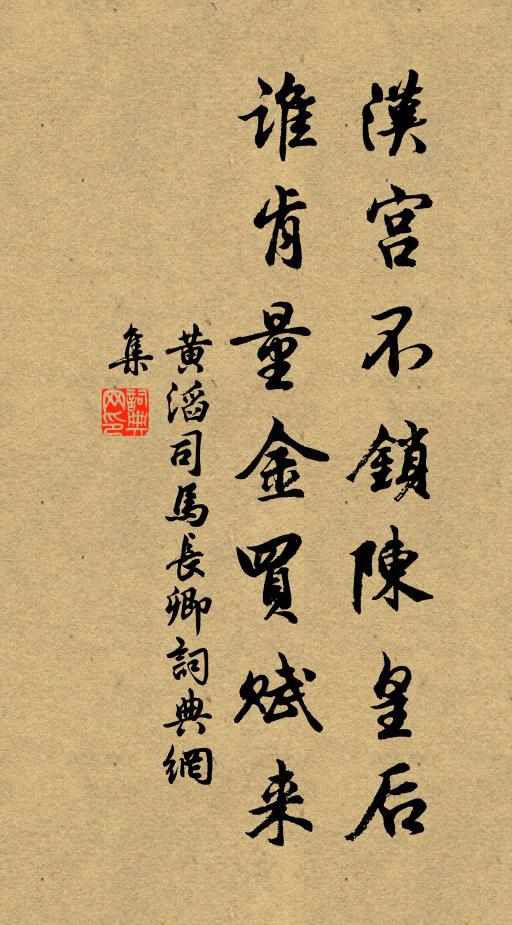 漢宮不鎖陳皇后
誰肯量金買賦来
黄滔司馬長卿詞典網
集
詞典网印